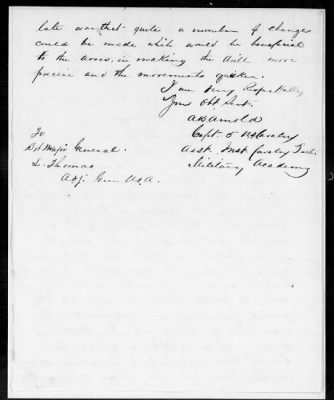 late war that quite a number of changes
could be made which would be beneficial
to the arms, in making the drill more
precise and the movements quicker.
I am Very Respectfully
Your Obt Servt.
A K Arnold
Capt 5 US Cavalry
Asst. Inst Cavalry Tactics
Military Academy
To
Bvt Major General.
L. Thomas
Adjt Genl U.S.A.